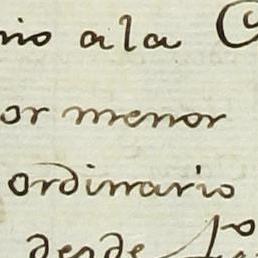 a la
or menor
ordinario
desde